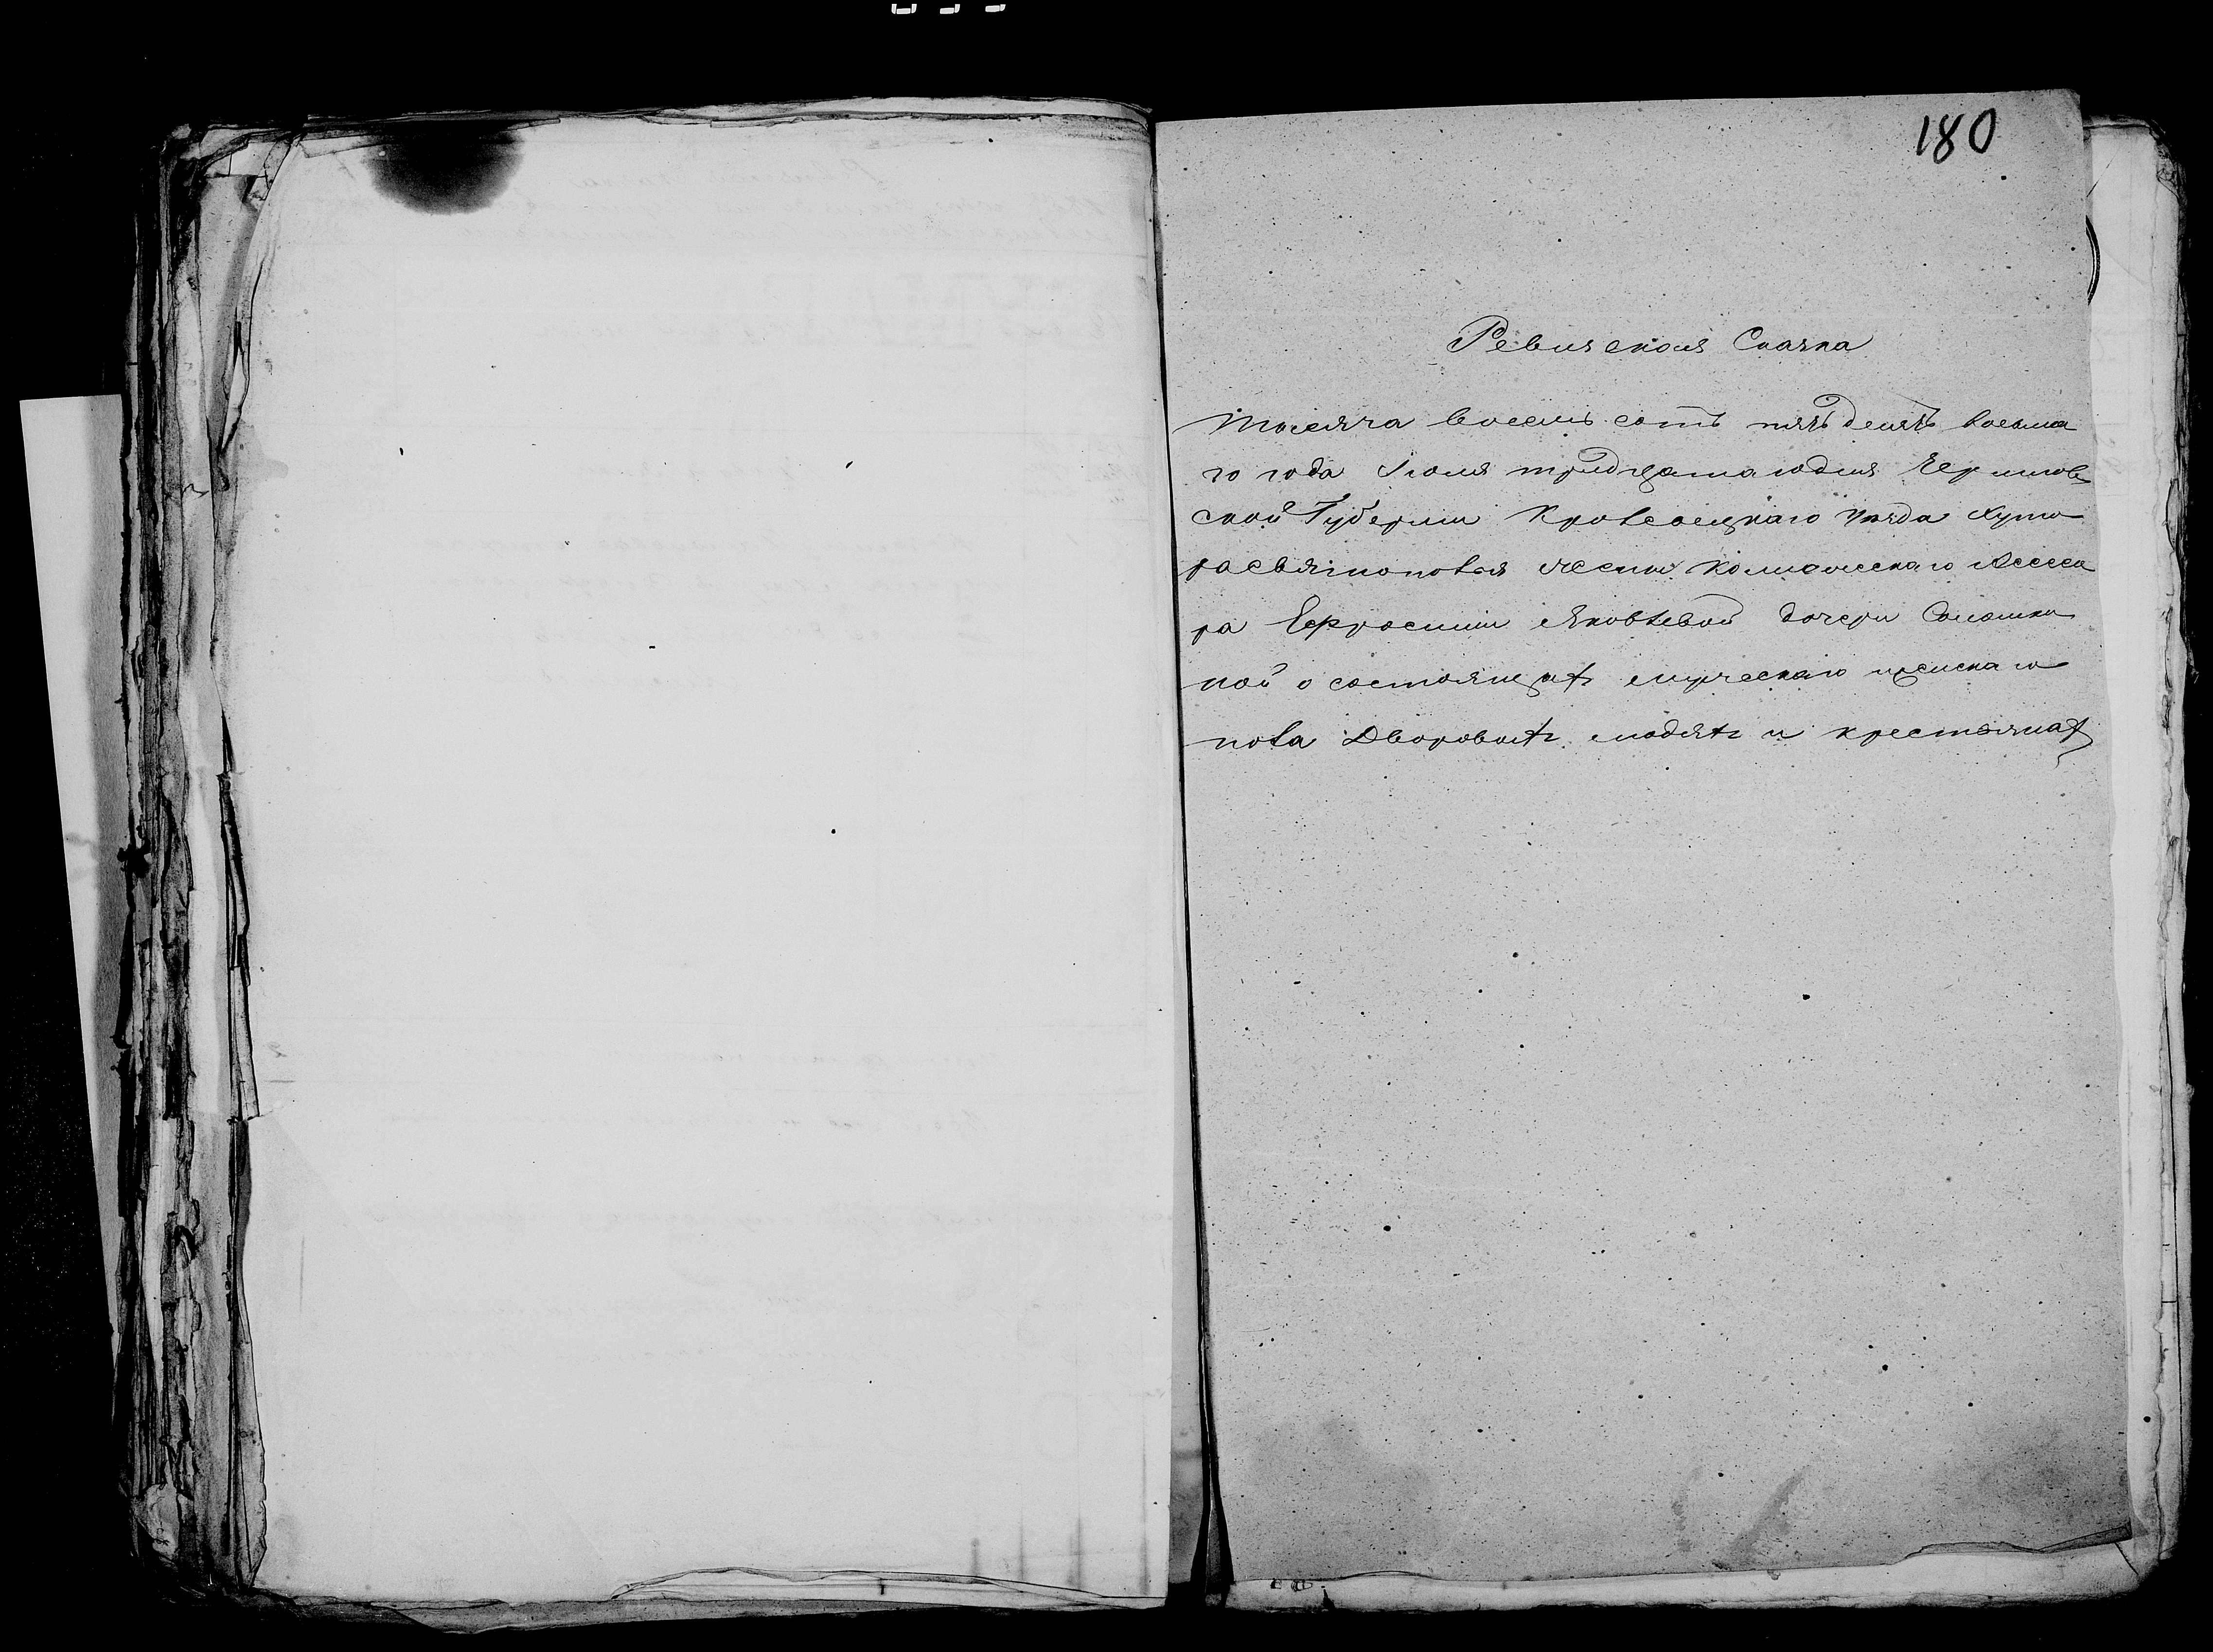 180
Ревизская Сказка
Тысяча восемь сотъ пятьдесятъ восьма
го года Іюля тридцатаго дня Чернигов
ской Губерніи Кролевецкаго уезда Хуто
ра жены Колежскаго Ассесо
ра Ефросиніи Яковлевой дочери
ной о состоящихъ мужескаго женскаго
пола Дворовыхъ людяхъ и крестьянахъ